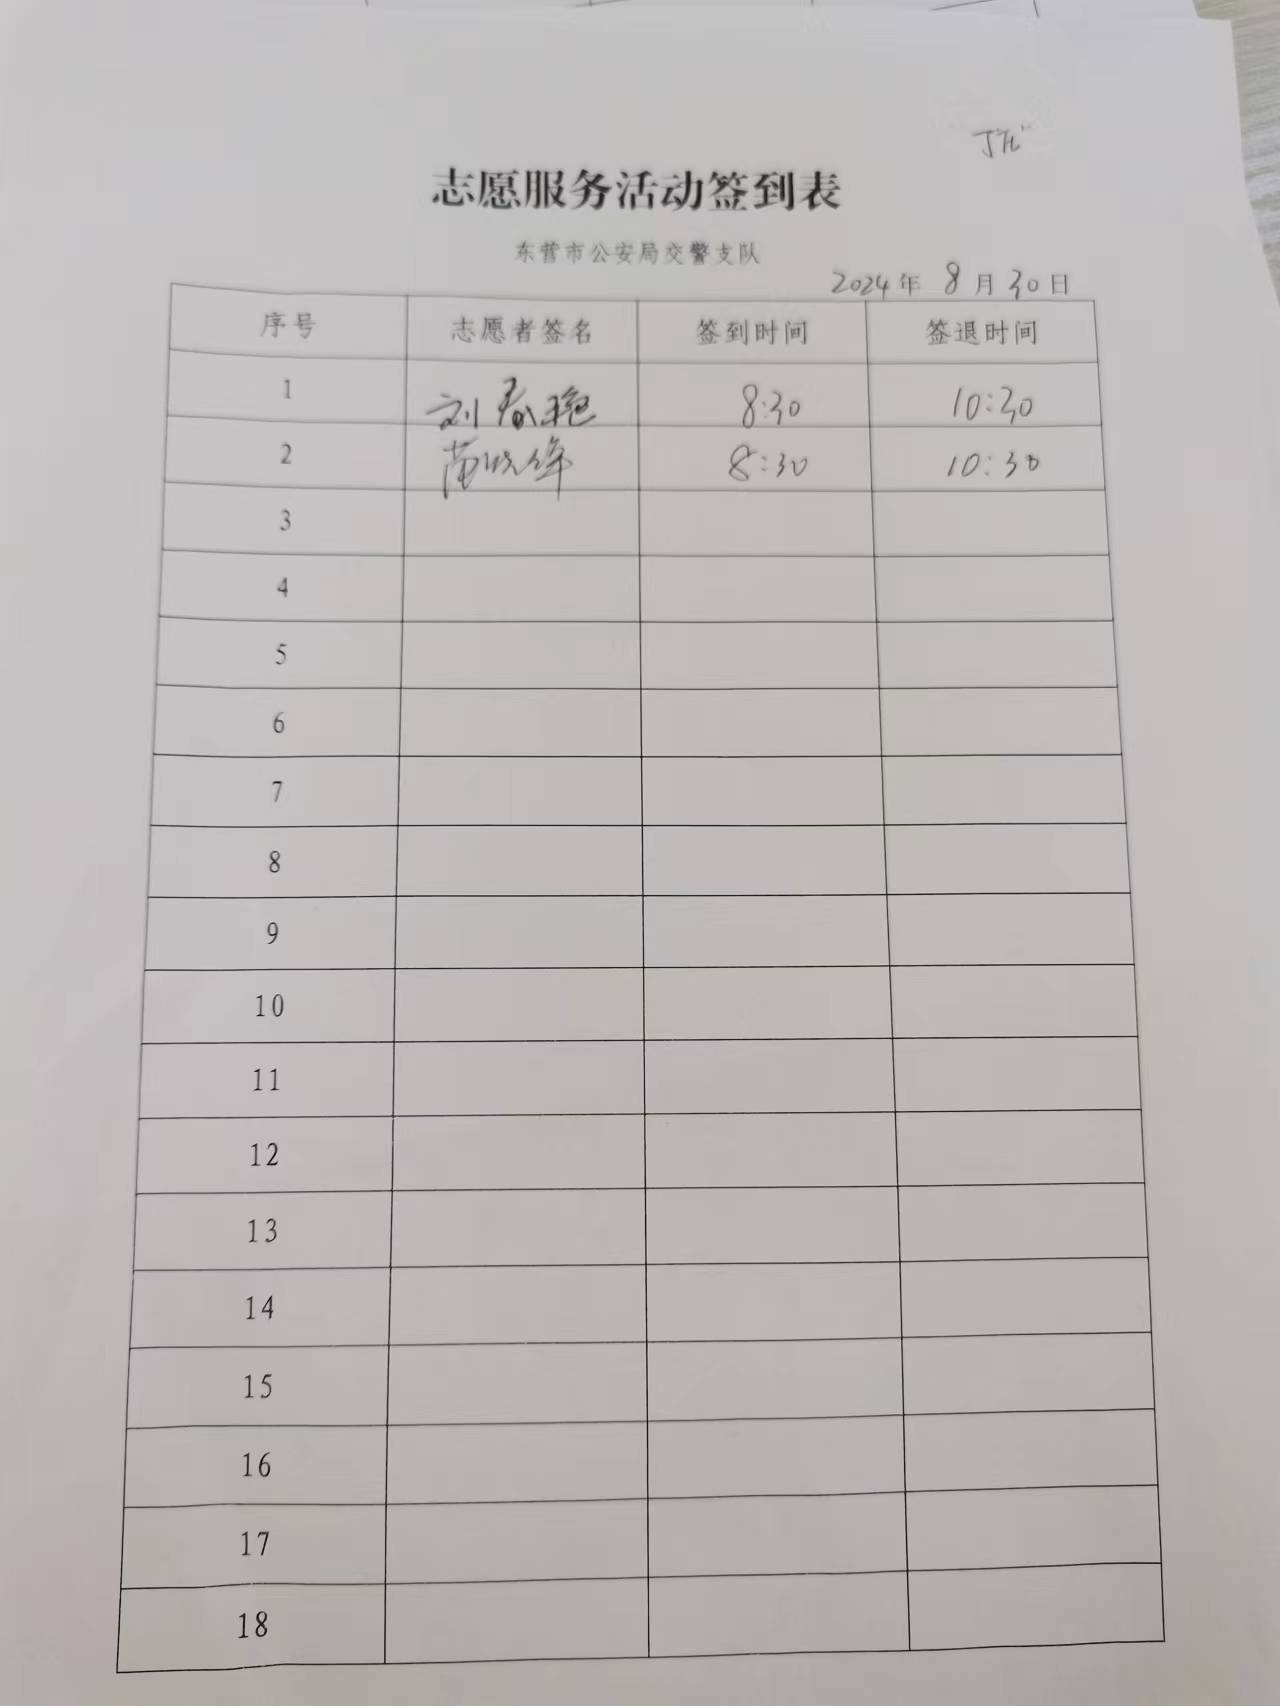 志愿服务活动签到表
东营市公安局交警支队
2024年 8月30日
序号 志愿者签名 签到时间 签退时间
1 刘春艳 8:30 10:30
2 苗晓 8:30 10:30
3
4
5
6
7
8
9
10
11
12
13
14
15
16
17
18